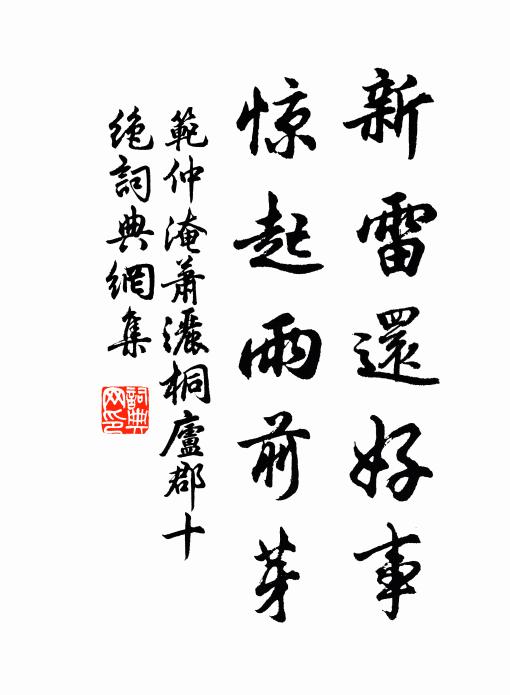 新雷還好事
惊起雨前芽
範仲淹蕭灑桐廬郡十
絶詞典網集
詞典网印